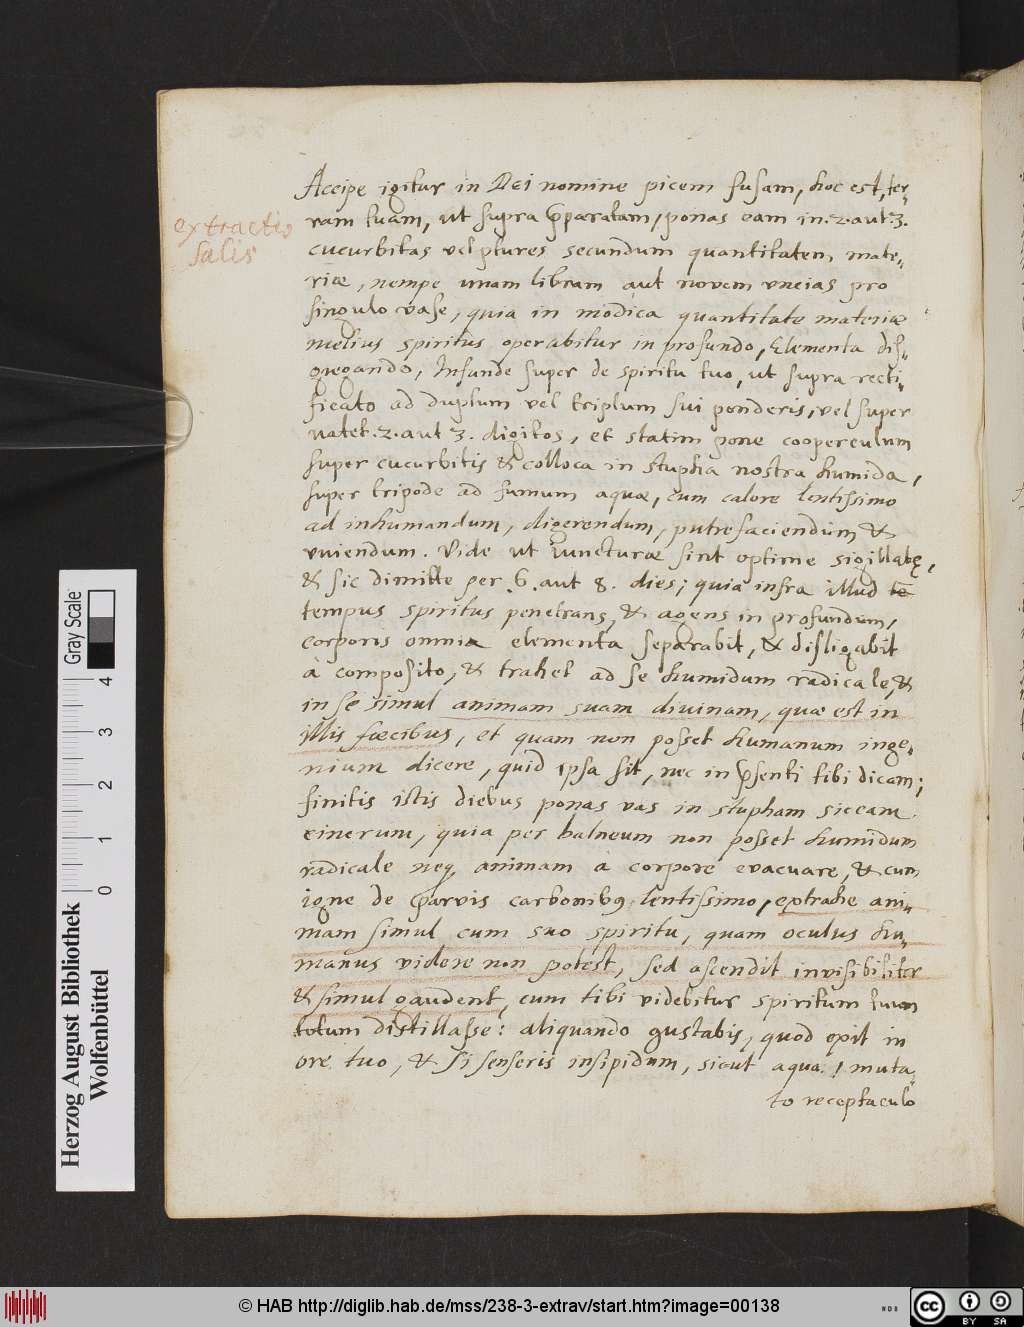 Accipe igitur in Dei nomine picem fusam, hoc est, ter-
extractio
salis
ram tuam, ut supra p̄paratam, ponas eam in .2. aut .3.
cucurbitas vel plures secundum quantitatem mate-
riæ, nempe unam libram aut novem vncias pro
singulo vase, quia in modica quantitate materiæ
melius spiritus operabitur in profundo, Elementa dis-
gregando, Infunde super de spiritu tuo, ut supra recti-
ficato ad duplum vel triplum sui ponderis, vel super
natet .2. aut 3. digitos, et statim pone cooperculum
super cucurbitis & colloca in stupha nostra humida,
super tripode ad fumum aquæ, cum calore lentissimo
ad inhumandum, digerendum, putrefaciendum &
vniendum. Vide ut iuncturæ sint optime sigillatę,
& sic dimitte per .6. aut 8. dies; quia infra illud te
tempus spiritus penetrans, & agens in profundum,
corporis omnia elementa separabit, & disligabit
à composito, & trahet ad se humidum radicale, &
in se simul animam suam divinam, quæ est in
illis fœcibus, et quam non posset humanum inge-
nium dicere, quid ipsa sit, nec in p̄senti tibi dicam;
finitis istis diebus ponas vas in stupham siccam
cinerum, quia per balneum non posset humidum
radicale neq, animam à corpore evacuare, & cum
igne de parvis carbonibꝰ lentissimo, extrahe ani-
mam simul cum suo spiritu, quam oculus hu-
manus videre non potest, sed ascendit invisibiliter
& simul gaudent, cum tibi videbitur spiritum tuum
totum distillasse: aliquando gustabis, quod exit in
ore tuo, & si senseris insipidum, sicut aqua: / muta
to receptaculo
Herzog August Bibliothek
Wolfenbüttel
0 1 2 3 4
Gray Scale
© HAB http://diglib.hab.de/mss/238-3-extrav/start.htm?image=00138
cc BY SA